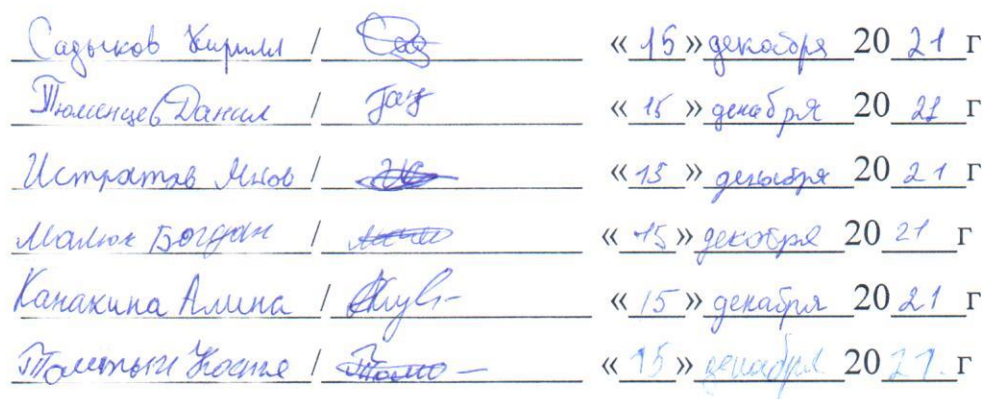 Садыков Кирилл / «15» декабря 2021 г
Тюменцев Данил / «15» декабря 2021 г
Истратов Яков / «15» декабря 2021 г
Малюк Богдан / «15» декабря 2021 г
Канакина Алина / «15» декабря 2021 г
Костя / «15» декабря 2021. г